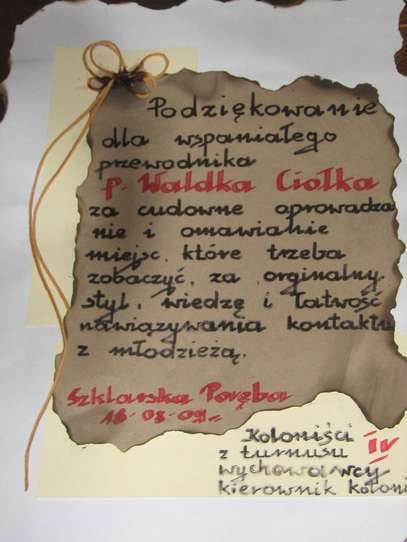 Podziękowanie
dla wspaniałego
przewodnika
p. Waldka Ciołka
za cudowne oprowadza
nie i omawianie
miejsc, które trzeba
zobaczyć, za orginalny
styl, wiedzę i łatwość
nawiązywania kontaktu
z młodzieżą.
Szklarska Poręba
18-08-09r.
Koloniści
z turnusu IV
wychowawcy
kierownik koloni